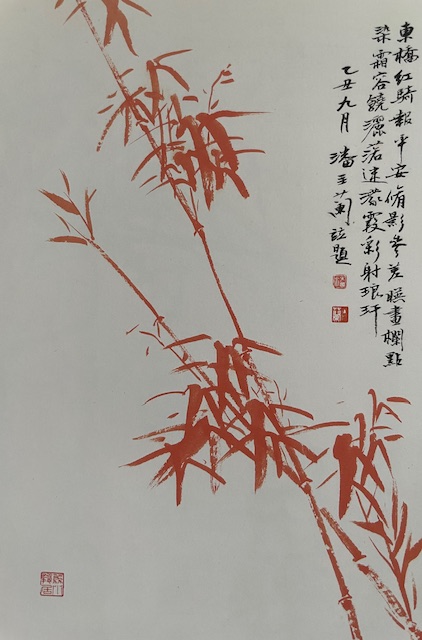 東橋紅騎報平安脩影參差暎畫欄點
染霜容饒灑落迷濛霞彩射琅玕
乙丑九月 潘主蘭並題